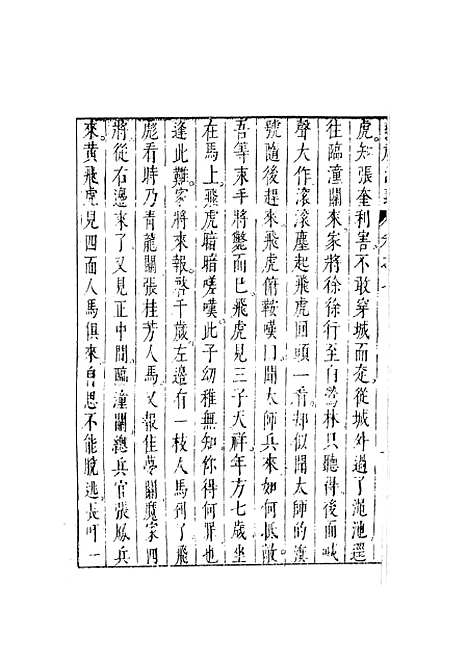 虎知張奎利害不敢穿城而走從城外過了澠池還
往臨潼關來家將徐徐行至白鶯林只聽得後面喊
聲大作滾滾塵起飛虎回頭一看却似聞大師的旗
號隨後趕來飛虎俯鞍嘆口聞大師兵來如何抵敵
吾等束手將斃而已飛虎見三子天祥年方七歲坐
在馬上飛虎暗暗嗟嘆此子幼稚無知你得何罪也
逢此難家將來報啓千歲左邊有一枝人馬到了飛
彪看時乃青龍關張桂芳人馬又報佳夢關魔家四
將從右邊來了又見正中間臨潼關總兵官張鳳兵
來黃飛虎見四面人馬俱來自思不能脫逃長吁一